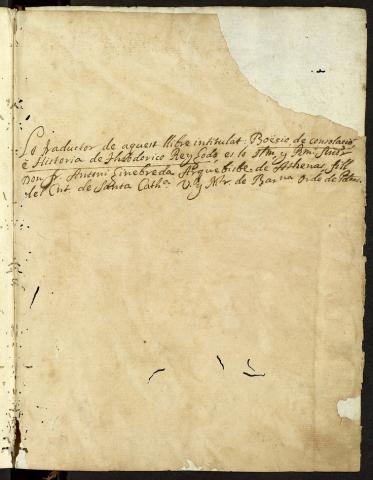 Lo traductor de aquest llibre intitulat: Boëcio de consolació
è Historia de Theodorico Rey Godo, es lo Illm. y Rm. Señor
Don Fr. Antoni Ginebreda Arquebisbe de Athenas, fill
del Cnt. de Santa Catha. V. y Mr. de Barna Orde de Pdrs.